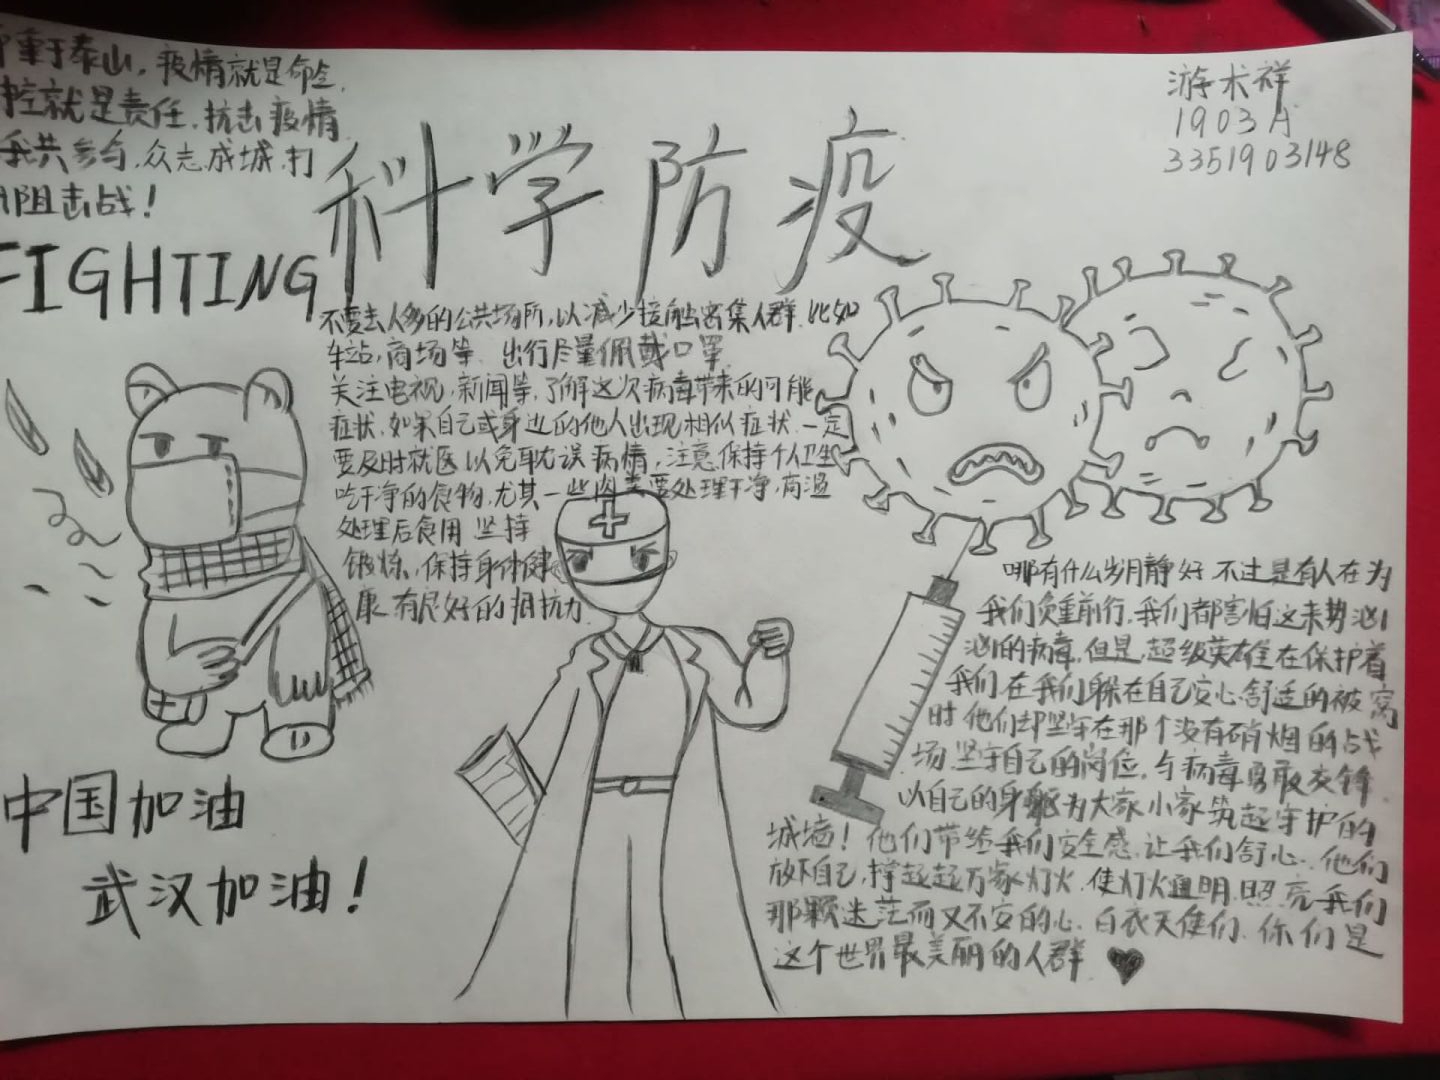 重于泰山，疫情就是命令，
控就是责任，抗击疫情
我共参与，众志成城，打
阻击战！
FIGHTING
科学防疫
游术祥
1903A
3351903148
不要去人多的公共场所，以减少接触密集人群，比如
车站，商场等，出行尽量佩戴口罩，
关注电视，新闻等，了解这次病毒带来的可能
症状，如果自己或身边的他人出现相似症状，一定
要及时就医以免耽误病情，注意保持个人卫生
吃干净的食物，尤其一些肉类要处理干净，高温
处理后食用 坚持
锻炼，保持身体健
康 有良好的抵抗力
中国加油
武汉加油！
哪有什么岁月静好 不过是有人在为
我们负重前行，我们都害怕这来势汹
汹的病毒，但是，超级英雄在保护着
我们 在我们躲在自己安心舒适的被窝
时 他们却坚守在那个没有硝烟的战
场 坚守自己的岗位，与病毒勇敢交锋
以自己的身躯为大家小家筑起守护的
城墙！他们带给我们安全感，让我们舒心，他们
放下自己，撑起起万家灯火，使灯火通明，照亮我们
那颗迷茫而又不安的心，白衣天使们，你们是
这个世界最美丽的人群